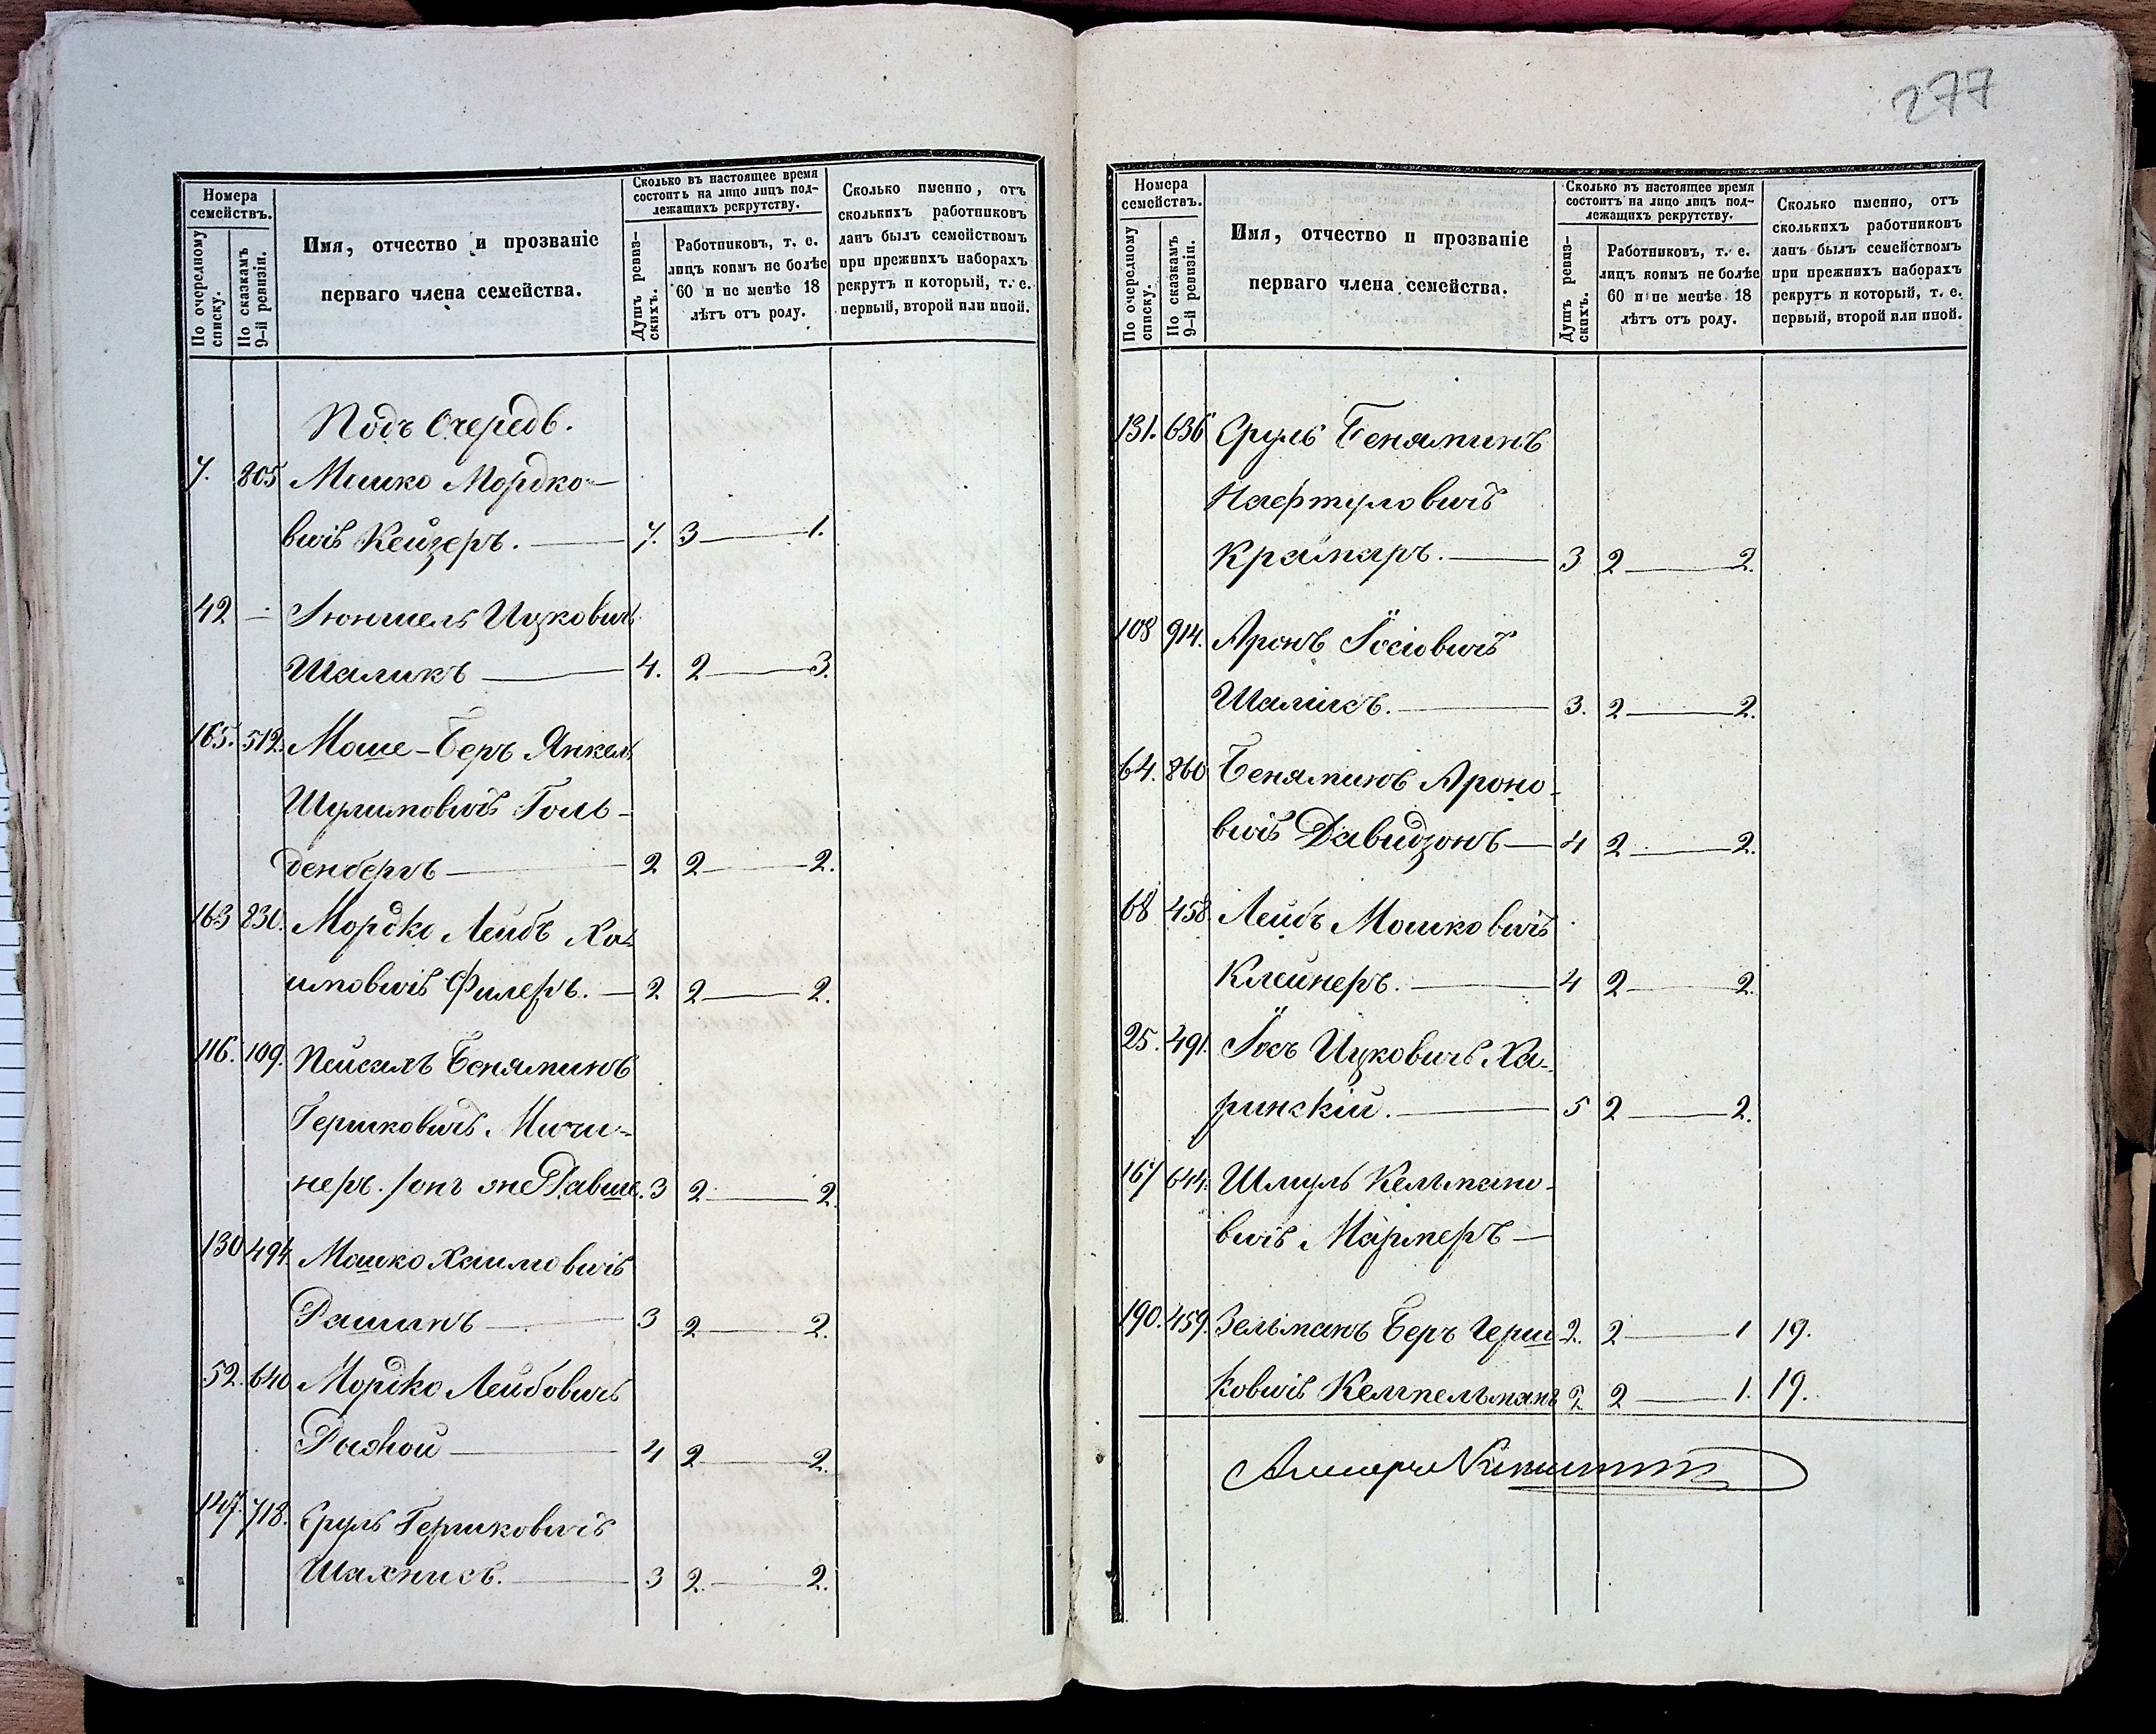 277
Номера
семействъ.
По очередному
списку.
По сказкамъ
9-й ревизіи.
Имя, отчество и прозваніе
перваго члена семейства.
Сколько въ настоящее время
состоитъ на лицо лицъ под-
лежащихъ рекрутству.
Душъ ревиз-
скихъ.
Работниковъ, т. е.
лицъ коимъ не болѣе
60 и не менѣе 18
лѣтъ отъ роду.
Сколько именно, отъ
сколькихъ работниковъ
данъ былъ семействомъ
при прежнихъ наборахъ
рекрутъ и который, т. е.
первый, второй или иной.
Подъ Очередь.
7. 805 Мошко Мордко-
вичъ Кейзеръ. 7. 3 1.
42 – Ицковичъ
Шаликъ 4. 2 3.
165. 512. Моше-Беръ Янкель
Шулимовичъ Голь-
денбергъ 2 2 2.
163 830. Мордко Лейбъ Ха-
имовичъ Филеръ. 2 2 2.
116. 109. Пейсахъ Беняминъ
Гершковичъ Мичи-
неръ. /онъ же 3 2 2.
130 494. Мошко Хаимовичъ
Рашинъ 3 2 2.
52. 640 Мордко Лейбовичъ
Рыжой 4 2 2.
147. 718. Сруль Гершковичъ
Шахнисъ. 3 2. 2.
Номера
семействъ.
По очередному
списку.
По сказкамъ
9-й ревизіи.
Имя, отчество и прозваніе
перваго члена семейства.
Сколько въ настоящее время
состоитъ на лицо лицъ под-
лежащихъ рекрутству.
Душъ ревиз-
скихъ.
Работниковъ, т. е.
лицъ коимъ не болѣе
60 и не менѣе 18
лѣтъ отъ роду.
Сколько именно, отъ
сколькихъ работниковъ
данъ былъ семействомъ
при прежнихъ наборахъ
рекрутъ и который, т. е.
первый, второй или иной.
131. 636 Сруль Беняминъ
Нафтуловичъ
Крамаръ. 3 2 2.
108 914. Аронъ Іосіовичъ
Шаликъ. 3. 2 2.
64. 860 БеняминъАроно-
вичъ Давидзонъ 4 2 2.
68 458. Лейбъ Мошковичъ
Клейнеръ. 4 2 2.
25. 491. Іосъ Ицковичъ Ха-
ринскій. 5 2 2.
167 644. Шмуль Кельмано-
вичъ Мармеръ
190. 459. Зельманъ Беръ Герш 2. 2 1 19.
ковичъ Кемпельманъ 2 2 1. 19.